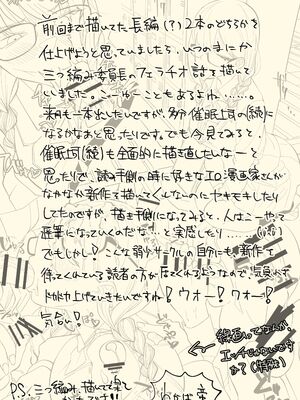 前回まで描いてた長編(?)2本のどちらかを
仕上げようと思っていましたら、いつのまにか
三つ編み委員長のフェラチオ話を描いて
いました。こーゆーこともあるよね……。
来月も一本出したいですが、多分催眠上司(続)に
なるかなあと思ったりです。でも今見てみると、
催眠上司(続)も全面的に描き直したいなーと
思ったりで、読み手側の時に好きなエロ漫画家さんが
なかなか新作を描いてくんないのにヤキモキしたり
してたのですが、描き手側になってみると、人はこーやって
寡筆になっていくのだな…と実感したり……
でもしかし!こんな弱小サークルの自分にも新作を
待ってくれている読者の方が居てくれるようなので、気負わず
ドカドカ上げていきたいですね!ウオー!ワオー!
気合い!
線画ってなんか、
エッチじゃないです
か?
P.S. 三つ編み、描いてて楽し